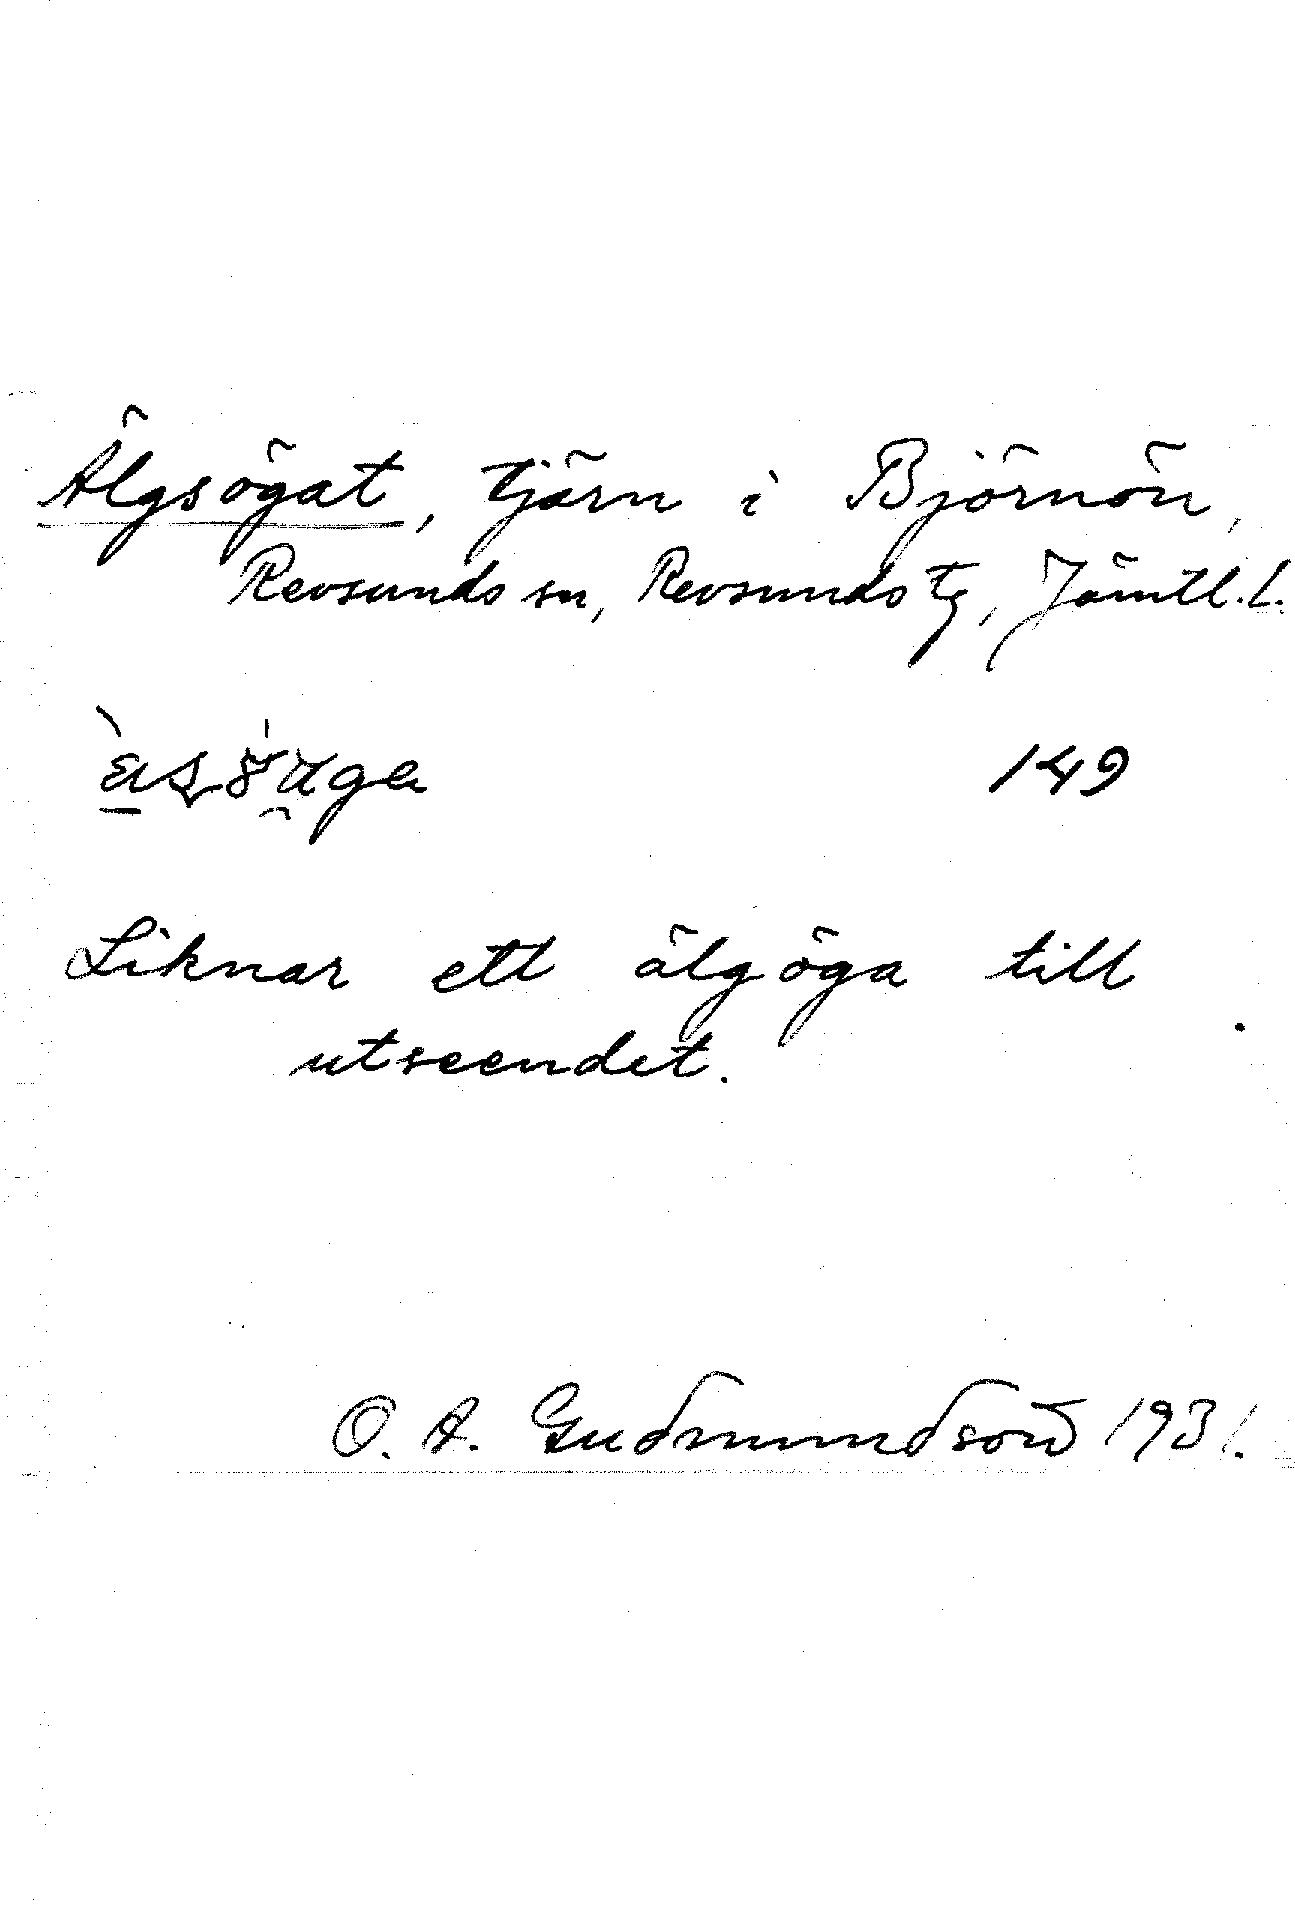 Älgsögat, tjärn i Björnön,
Revsunds sn, Revsunds tg, Jämtl. l.
149
Liknar ett älgöga till
utseendet.
O. A. Gudmundson 1931.